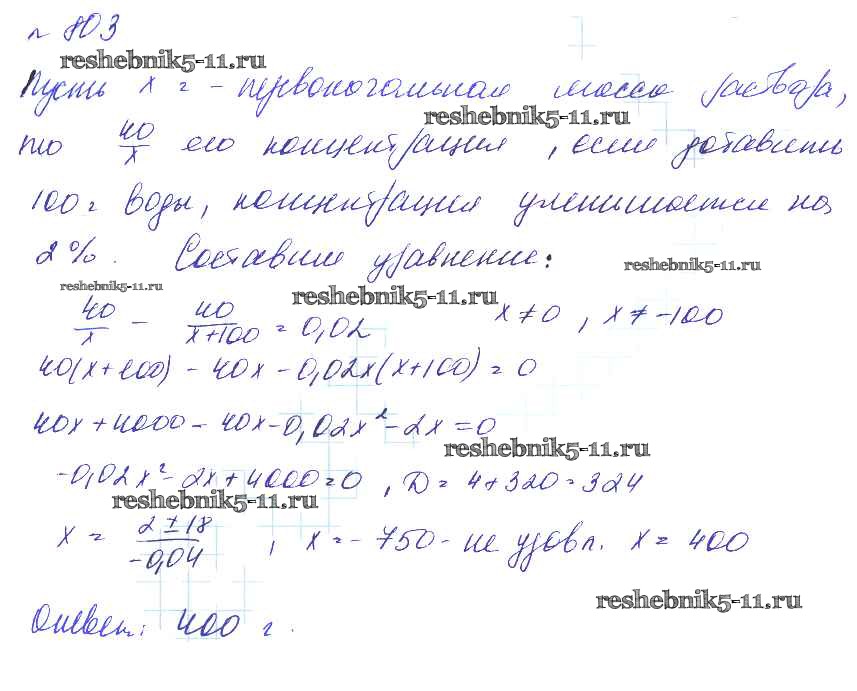 № 803
reshebnik5-11.ru
Пусть x г - первоначальная масса раствора,
reshebnik5-11.ru
то 40/x его концентрация, если добавить
100 г воды, концентрация уменьшается на
2%. Составим уравнение:
reshebnik5-11.ru
reshebnik5-11.ru
reshebnik5-11.ru
40/x - 40/(x+100) = 0,02 x ≠ 0, x ≠ -100
40(x+100) - 40x - 0,02x(x+100) = 0
40x + 4000 - 40x - 0,02x² - 2x = 0
reshebnik5-11.ru
-0,02x² - 2x + 4000 = 0, D = 4 + 320 = 324
reshebnik5-11.ru
x = (2 ± 18)/(-0,04), x = -750 - не удовл. x = 400
reshebnik5-11.ru
Ответ: 400 г.